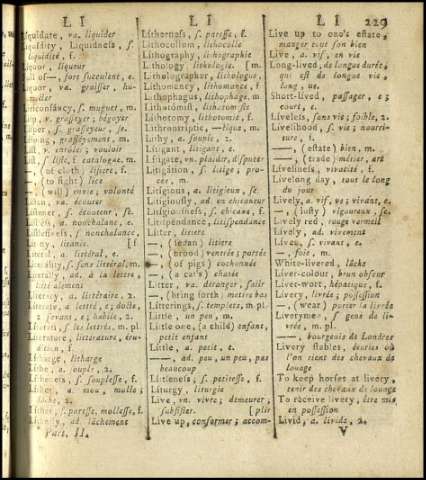 L I
L I
L I 229
Liquidate, va. liquider
Liquidity, Liquidness, s.
liquidité, f.
Liquor, liqueur
of—, fore succulent, e.
Liquor, va. graisser,
f. muguet, m.
v. grasseyer, bégayer
s. grasseyeur, se.
grasseyement, m.
v. enrôler; vouloir
List, s. liste, f. catalogue. m.
(of cloth) lisiere, f.
(to fight) lice
envie, volonté
va. écouter
s. écouteur, se.
a. nonchalant, e.
nonchalance
litanie. [f
a. littéral, e.
s. sens littéral, m.
ad. à la lettre,
littéralement
a. littéraire, 2.
a. lettré, e; docte,
2. savant, e; habile, 2.
s. les lettrés, m. pl.
Literature, littérature,
litharge
Lithe, a. souple, 2.
s. souplesse, f.
a. mou, mollo;
s. paresse, mollesse, f.
ad. lâchement
Part. II.
s. paresse, f.
Lithocollon, lithocolle
Lithography, lithographie
Lithology, lithologie. [m.
Lithologapher, lithologue,
Lithomancy, lithomance, f.
Lithophagus, lithophage. m
Lithotomist, lithotomiste
Lithotomy, lithotomie, f.
—tique, m.
Lithy, a. souple, 2.
Litigant, litigant, e.
Litigate, vn. plaider, disputer
Litigation, s. litige, procès, m.
Litigious, a. litigieux, se.
Litigiously, ad. en chicaneur
Litigiousness, s. chicane, f.
Litispendence, litispendance
Litter, litiere
—, (sedan) litiere
—, (brood) ventrée; portée
—, (of pigs) cochonnée
—, (a cat's) chatée
Litter, va. déranger, salir
—, (bring forth) mettre bas
Litterings, s. templets, m pl.
Little, un peu, m.
Little one, (a child) enfant,
petit enfant
Little, a. petit, e.
—, ad. peu, un peu, pas
beaucoup
Littleness, s. petitesse, f.
Liturgy, liturgie
Live, vn. vivre; demeurer,
subsister. [plir
Live up, conformer; accom-
Live up to one's estate,
manger tout son bien
Live, a. vif, en vie
Long-lived, de longue durée,
qui est de longue vie,
long, ue.
Short-lived, passager, e;
court, e.
Liveless, sans vie; foible, 2.
Livelihood, s. vie; nourri-
ture, f.
—, (estate) bien, m.
—, (trade) métier, art
Liveliness, vivacité, f.
Livelong day, tout le long
du jour
Lively, a. vif, ve; vivant, e.
—, (lusty) vigoureux, se.
Lively red, rouge vermeil
Lively, ad. vivement
Liver, s. vivant, e.
—, foie, m.
White-livered, lâche
Liver-colour, brun obscur
Liver-wort, hépatique, f.
Livery, livrée; possession
—, (wear) porter la livrée
Liverymen, s. gens de li-
vrée, m. pl.
—, bourgeois de Londres
Livery stables, écuries où
l'on tient des chevaux de
louage
To keep horses at livery,
tenir des chevaux de louage
To receive livery, être mis
en possession
Livid, a. livide, 2.
V